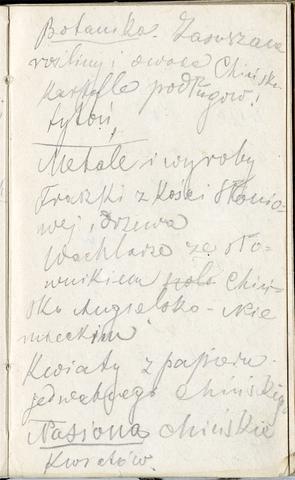 Botanika. Zasuszane
rośliny i owoce Chińskie
Kartofle podługow.
tytoń,
Metale i wyroby
Fraszki z Kości Słonio-
wej i drzewa
Wachlarze ze sło-
wnikiem Chiń-
sko Angielsko-Nie
mieckim
Kwiaty z papieru
jedwabnego Chińskiego
Nasiona Chińskie
Kwiatów.